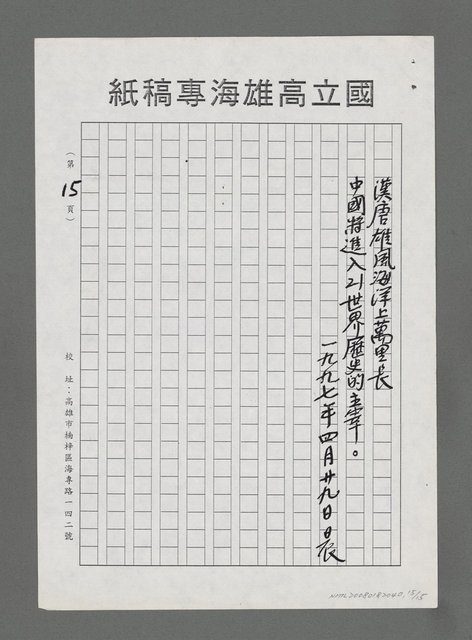 國立高雄海專稿紙
漢唐雄風海洋上萬里長
中國將進入21世界歷史的主宰。
一九九七年四月廿九日日晨
（第15頁）
校址：高雄市楠梓區海專路一四二號
NMTL20080182040, 15/15